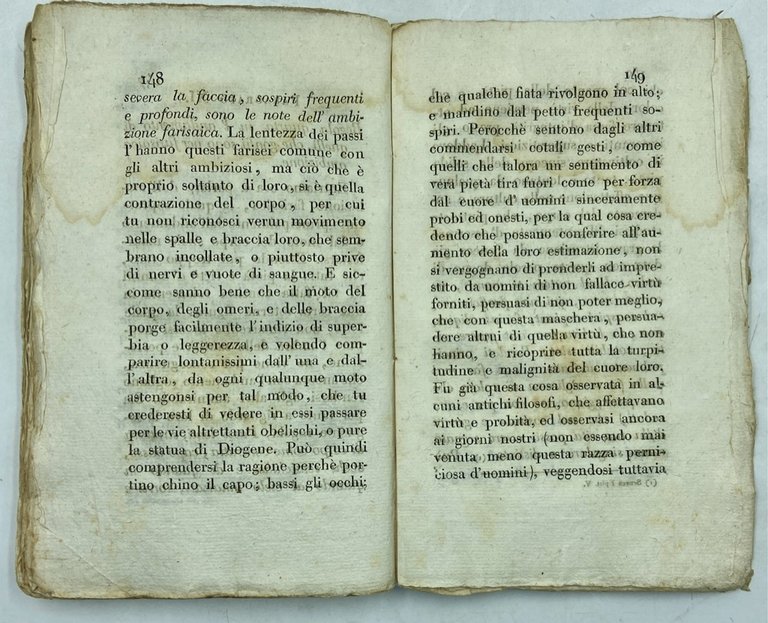 148
severa la faccia, sospiri frequenti
e profondi, sono le note dell'ambi-
zione farisaica. La lentezza dei passi
l'hanno questi farisei comune con
gli altri ambiziosi, ma ciò che è
proprio soltanto di loro, si è quella
contrazione del corpo, per cui
tu non riconosci verun movimento
nelle spalle e braccia loro, che sem-
brano incollate, o piuttosto prive
di nervi e vuote di sangue. E sic-
come sanno bene che il moto del
corpo, degli omeri, e delle braccia
porge facilmente l'indizio di super-
bia o leggerezza, e volendo com-
parire lontanissimi dall'una e dal-
l'altra, da ogni qualunque moto
astengonsi per tal modo, che tu
crederesti di vedere in essi passare
per le vie altrettanti obelischi, o pure
la statua di Diogene. Può quindi
comprendersi la ragione perchè por-
tino chino il capo; bassi gli occhi;
149
che qualche fiata rivolgono in alto;
e mandino dal petto frequenti so-
spiri. Perocchè sentono dagli altri
commendarsi cotali gesti, come
quelli che talora un sentimento di
vera pietà tira fuori come per forza
dal cuore d'uomini sinceramente
probi ed onesti, per la qual cosa cre-
dendo che possano conferire all'au-
mento della loro estimazione, non
si vergognano di prenderli ad impre-
stito da uomini di non fallace virtù
forniti, persuasi di non poter meglio,
che con questa maschera, persua-
dere altrui di quella virtù, che non
hanno, e ricoprire tutta la turpi-
tudine e malignità del cuore loro.
Fu già questa cosa osservata in al-
cuni antichi filosofi, che affettavano
virtù e probità, ed osservasi ancora
ai giorni nostri (non essendo mai
venuta meno questa razza perni-
ciosa d'uomini), veggendosi tuttavia